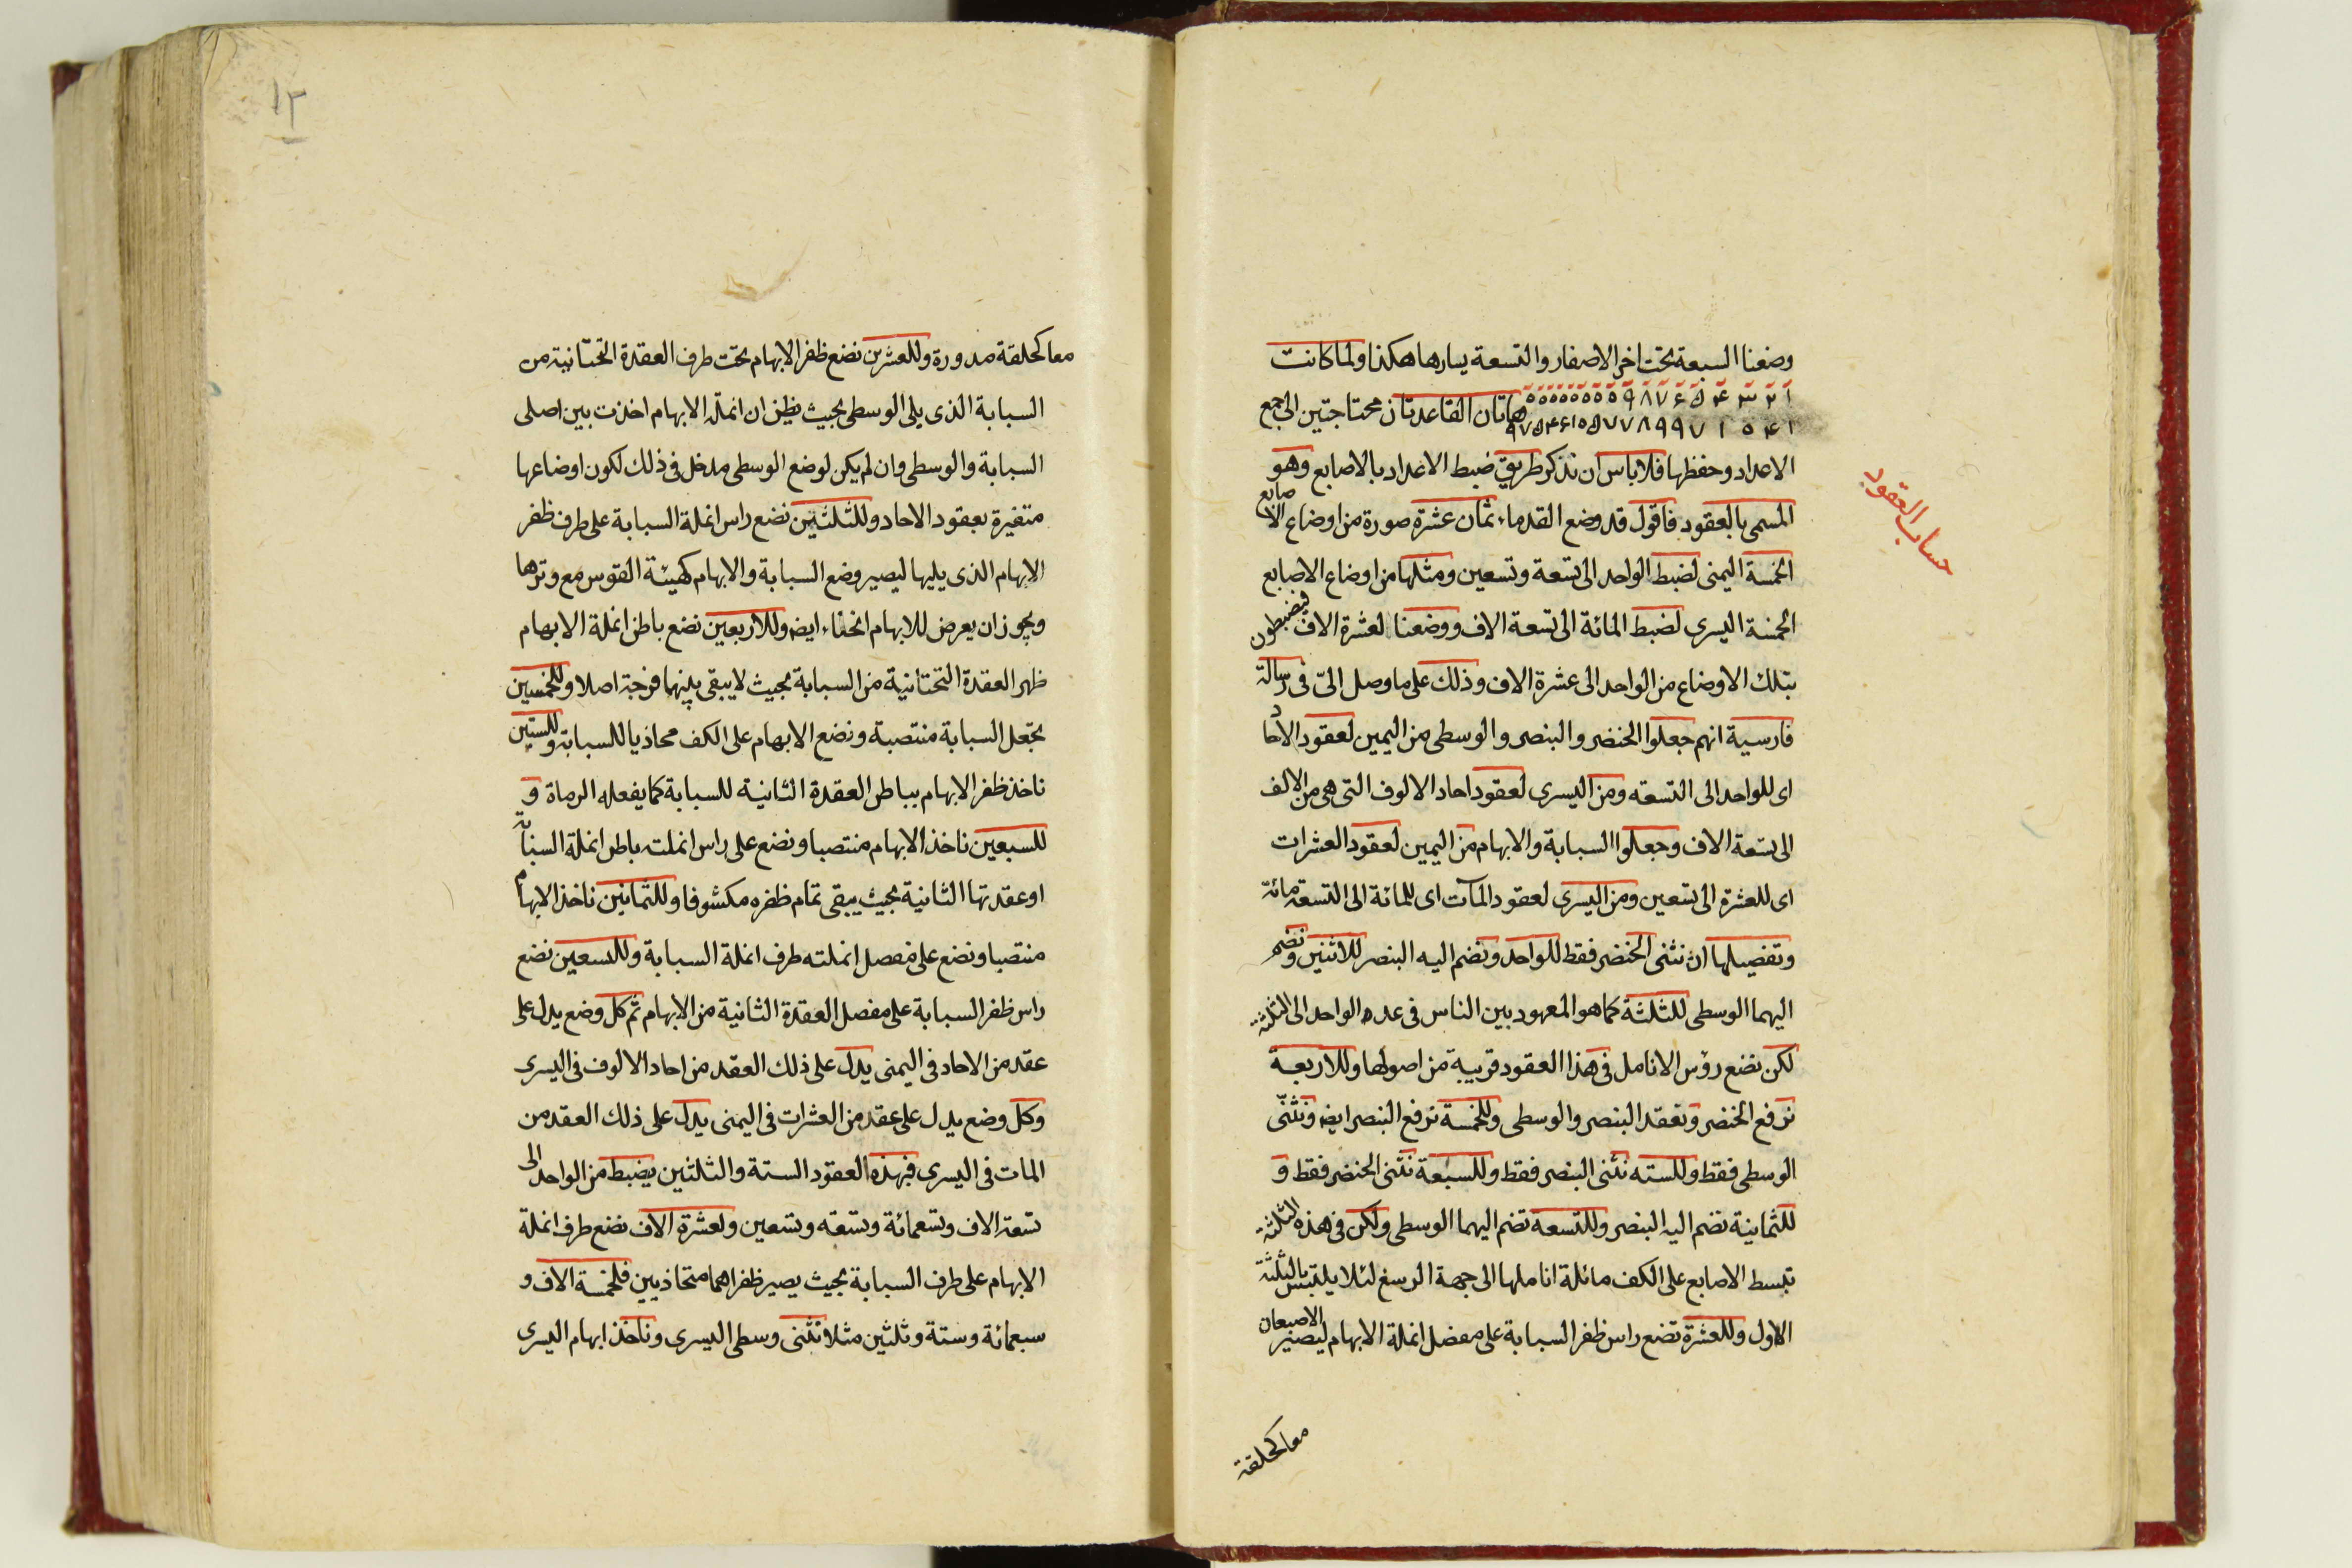 وضعنا السبعة تحت اخر الاصفار والتسعة يسارها هكذا ولما كانت
هاتان القاعدتان محتاجتين الى جمع
الاعداد وحفظها فلا باس ان نذكر طريق ضبط الاعداد بالاصابع وهو
المسمى بالعقود فاقول قد وضع القدماء ثمان عشرة صورة من اوضاع الاصابع
الخمسة اليمنى لضبط الواحد الى تسعة وتسعين ومثلها من اوضاع الاصابع
الخمسة اليسرى لضبط المائة الى تسعة الاف ووضعنا لعشرة الاف فيضبطون
بتلك الاوضاع من الواحد الى عشرة الاف وذلك على ما وصل الىّ فى رسالة
فارسية انهم جعلوا الخنصر والبنصر والوسطى من اليمين لعقود الاحاد
اى للواحد الى التسعة ومن اليسرى لعقود احاد الالوف التى هى من الالف
الى تسعة الاف وجعلوا السبابة والابهام من اليمين لعقود العشرات
اى للعشرة الى تسعين ومن اليسرى لعقود المآت اى للمائة الى التسعمائة
وتفصيلها ان نثنى الخنصر فقط للواحد ونضم اليه البنصر للاثنين ونضم
اليهما الوسطى للثلثة كما هو المعهود بين الناس فى عدد الواحد الى الثلثة
لكن نضع رؤس الانامل فى هذا العقود قريبة من اصولها وللاربعة
نرفع الخنصر ونعقد البنصر والوسطى وللخمسة نرفع البنصر ايض ونثنى
الوسطى فقط وللسته نثنى البنصر فقط وللسبعة نثنى الخنصر فقط و
للثمانية نضم اليه البنصر وللتسعة نضم اليهما الوسطى ولكن فى هذه الثلثة
تبسط الاصابع على الكف مائلة اناملها الى جهة الرسغ لئلا يلتبس بالثلثة
الاول وللعشرة نضع راس ظفر السبابة على مفصل انملة الابهام ليصير الاصبعان
معا كحلقة
حساب العقود
معا كحلقة مدورة وللعشرين نضع ظفر الابهام تحت طرف العقدة التحتانية من
السبابة الذى يلى الوسطى بحيث يظن ان انملة الابهام اخذت بين اصلى
السبابة والوسطى وان لم يكن لوضع الوسطى مدخل فى ذلك لكون اوضاعها
متغيرة بعقود الاحاد وللثلثين نضع راس انملة السبابة على طرف ظفر
الابهام الذى يليها ليصير وضع السبابة والابهام كهيئة القوس مع وترها
ويجوز ان يعرض للابهام انحناء ايض وللاربعين نضع باطن انملة الابهام
ظهر العقدة التحتانية من السبابة بحيث لا يبقى بينهما فرجة اصلا وللخمسين
نجعل السبابة منتصبة ونضع الابهام على الكف محاذيا للسبابة وللستين
ناخذ ظفر الابهام بباطن العقدة الثانية للسبابة كما يفعله الرماة و
للسبعين ناخذ الابهام منتصبا ونضع على راس انملته باطن انملة السبابة
او عقدتها الثانية بحيث يبقى تمام ظفره مكشوفا وللثمانين ناخذ الابهام
منتصبا ونضع على مفصل انملته طرف انملة السبابة وللتسعين نضع
راس ظفر السبابة على مفصل العقدة الثانية من الابهام ثم كل وضع يدل على
عقد من الاحاد فى اليمنى يدل على ذلك العقد من احاد الالوف فى اليسرى
وكل وضع يدل على عقد من العشرات فى اليمنى يدل على ذلك العقد من
المات فى اليسرى فبهذه العقود الستة والثلثين يضبط من الواحد الى
تسعة الاف وتسعمائة وتسعه وتسعين ولعشرة الاف نضع طرف انملة
الابهام على طرف السبابة بحيث يصير ظفراهما متحاذيين فلخمسة الاف و
سبعمائة وستة وثلثين مثلا نثنى وسطى اليسرى وناخذ ابهام اليسرى
١٢